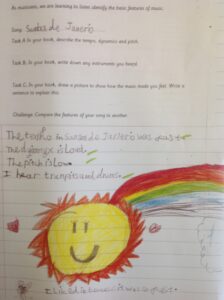 As musicians, we are learning to listen identify the basic features of music.
Song: Samba de Janerio
Task A In your book, describe the tempo, dynamics and pitch.
Task B: In your book, write down any instruments you heard.
Task C: In your book, draw a picture to show how the music made you feel. Write a
sentence to explain this.
Challenge: Compare the features of your song to another.
The tempo in Samba de Janerio was fast
The dynamic is Loud.
The pitch is Low.
I hear trumpits and drums.
I Liked it because it was